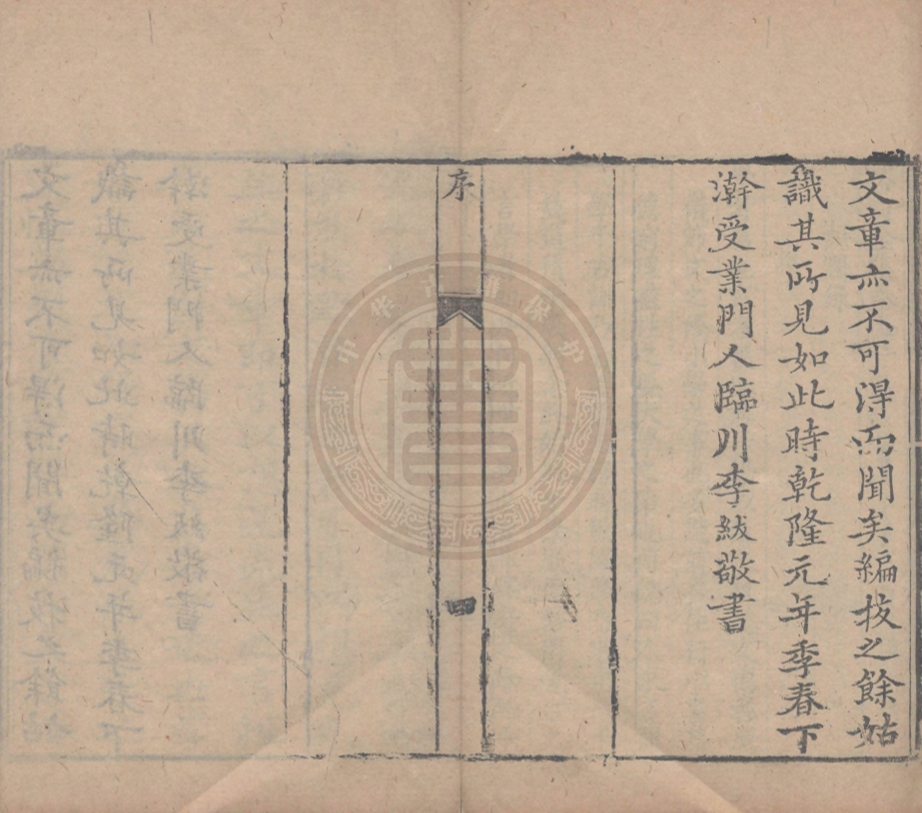 文章亦不可得而聞矣編校之餘姑
識其所見如此時乾隆元年季春下
澣受業門人臨川李紱敬書
序
四
中华古籍保护